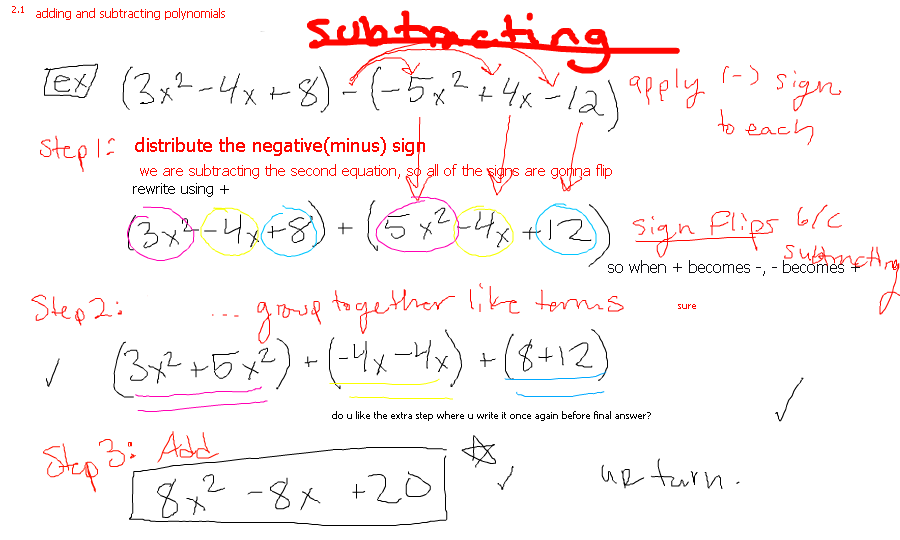 2.1 adding and subtracting polynomials
subtracting
ex (3x² - 4x + 8) - (-5x² + 4x - 12) apply (-) sign
to each
Step 1: distribute the negative(minus) sign
we are subtracting the second equation, so all of the signs are gonna flip
rewrite using +
(3x² - 4x + 8) + (5x² - 4x + 12) sign flips b/c
subtracting
so when + becomes -, - becomes +
Step 2: ... group together like terms sure
(3x² + 5x²) + (-4x - 4x) + (8 + 12)
do u like the extra step where u write it once again before final answer?
Step 3: Add
8x² - 8x + 20
ur turn.